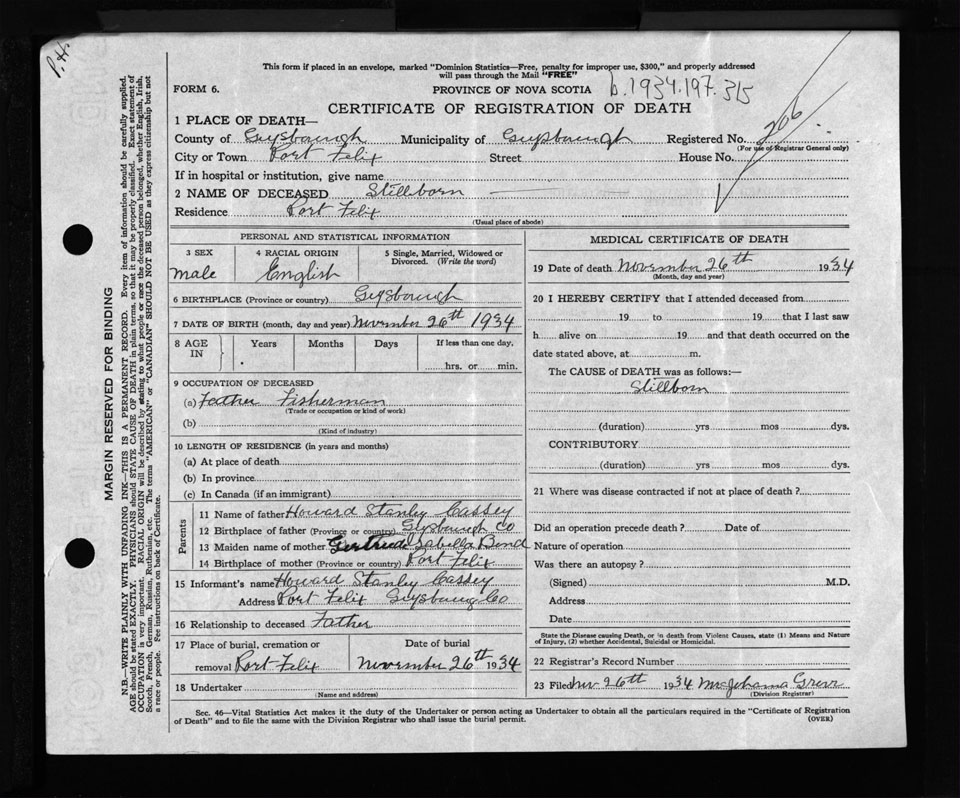 P.H.
This form if placed in an envelope, marked "Dominion Statistics—Free, penalty for improper use, $300," and properly addressed
will pass through the Mail "FREE"
FORM 6.
PROVINCE OF NOVA SCOTIA
b.1934.197.315
CERTIFICATE OF REGISTRATION OF DEATH
1 PLACE OF DEATH—
County of Guysbaurgh Municipality of Guysbaurgh Registered No. 206
(For use of Registrar General only)
City or Town Port Felix Street House No.
If in hospital or institution, give name
2 NAME OF DECEASED Stillborn
Residence Port Felix
(Usual place of abode)
PERSONAL AND STATISTICAL INFORMATION
3 SEX
male
4 RACIAL ORIGIN
English
5 Single, Married, Widowed or
Divorced. (Write the word)
6 BIRTHPLACE (Province or country) Guysbaurgh
7 DATE OF BIRTH (month, day and year) November 26th 1934
8 AGE IN Years Months Days If less than one day,
hrs. or min.
9 OCCUPATION OF DECEASED
(a) Father Fisherman
(Trade or occupation or kind of work)
(b)
(Kind of industry)
10 LENGTH OF RESIDENCE (in years and months)
(a) At place of death
(b) In province
(c) In Canada (if an immigrant)
Parents
11 Name of father Howard Stanley Cassey
12 Birthplace of father (Province or country) Guysbaurgh Co
13 Maiden name of mother Gertrude Isabella Bond
14 Birthplace of mother (Province or country) Port Felix
15 Informant's name Howard Stanley Cassey
Address Port Felix Guysbaurg Co
16 Relationship to deceased Father
17 Place of burial, cremation or Date of burial
removal Port Felix November 26th 1934
18 Undertaker
(Name and address)
MEDICAL CERTIFICATE OF DEATH
19 Date of death November 26th 1934
(Month, day and year)
20 I HEREBY CERTIFY that I attended deceased from
19 to 19 that I last saw
h alive on 19 and that death occurred on the
date stated above, at m.
The CAUSE of DEATH was as follows:—
Stillborn
(duration) yrs mos dys.
CONTRIBUTORY
(duration) yrs mos dys.
21 Where was disease contracted if not at place of death?
Did an operation precede death? Date of
Nature of operation
Was there an autopsy?
(Signed) M.D.
Address
Date
State the Disease causing Death, or in death from Violent Causes, state (1) Means and Nature
of Injury, (2) whether Accidental, Suicidal or Homicidal.
22 Registrar's Record Number
23 Filed Nov 26th 1934 Mrs Johanna
(Division Registrar)
Sec. 46—Vital Statistics Act makes it the duty of the Undertaker or person acting as Undertaker to obtain all the particulars required in the "Certificate of Registration
of Death" and to file the same with the Division Registrar who shall issue the burial permit.
(OVER)
MARGIN RESERVED FOR BINDING
N.B.—WRITE PLAINLY WITH UNFADING INK—THIS IS A PERMANENT RECORD. Every item of information should be carefully supplied.
AGE should be stated EXACTLY. PHYSICIANS should STATE CAUSE OF DEATH in plain terms, so that it may be properly classified. Exact statement of
OCCUPATION is very important. RACIAL ORIGIN will be described by stating to what people or race the deceased person belonged, whether English, Irish,
Scotch, French, German, Russian, Ruthenian, etc. The terms "AMERICAN" or "CANADIAN" SHOULD NOT BE USED as they express citizenship but not
a race or people. Fee instructions on back of Certificate.